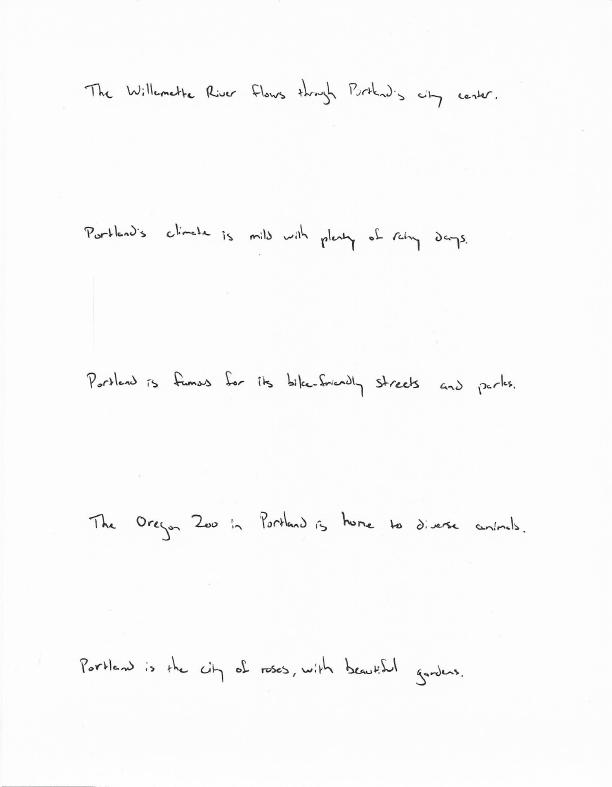 The Willamette River flows through Portland's city center.
Portland's climate is mild with plenty of rainy days.
Portland is famous for its bike-friendly streets and parks.
The Oregon Zoo in Portland is home to diverse animals.
Portland is the city of roses, with beautiful gardens.